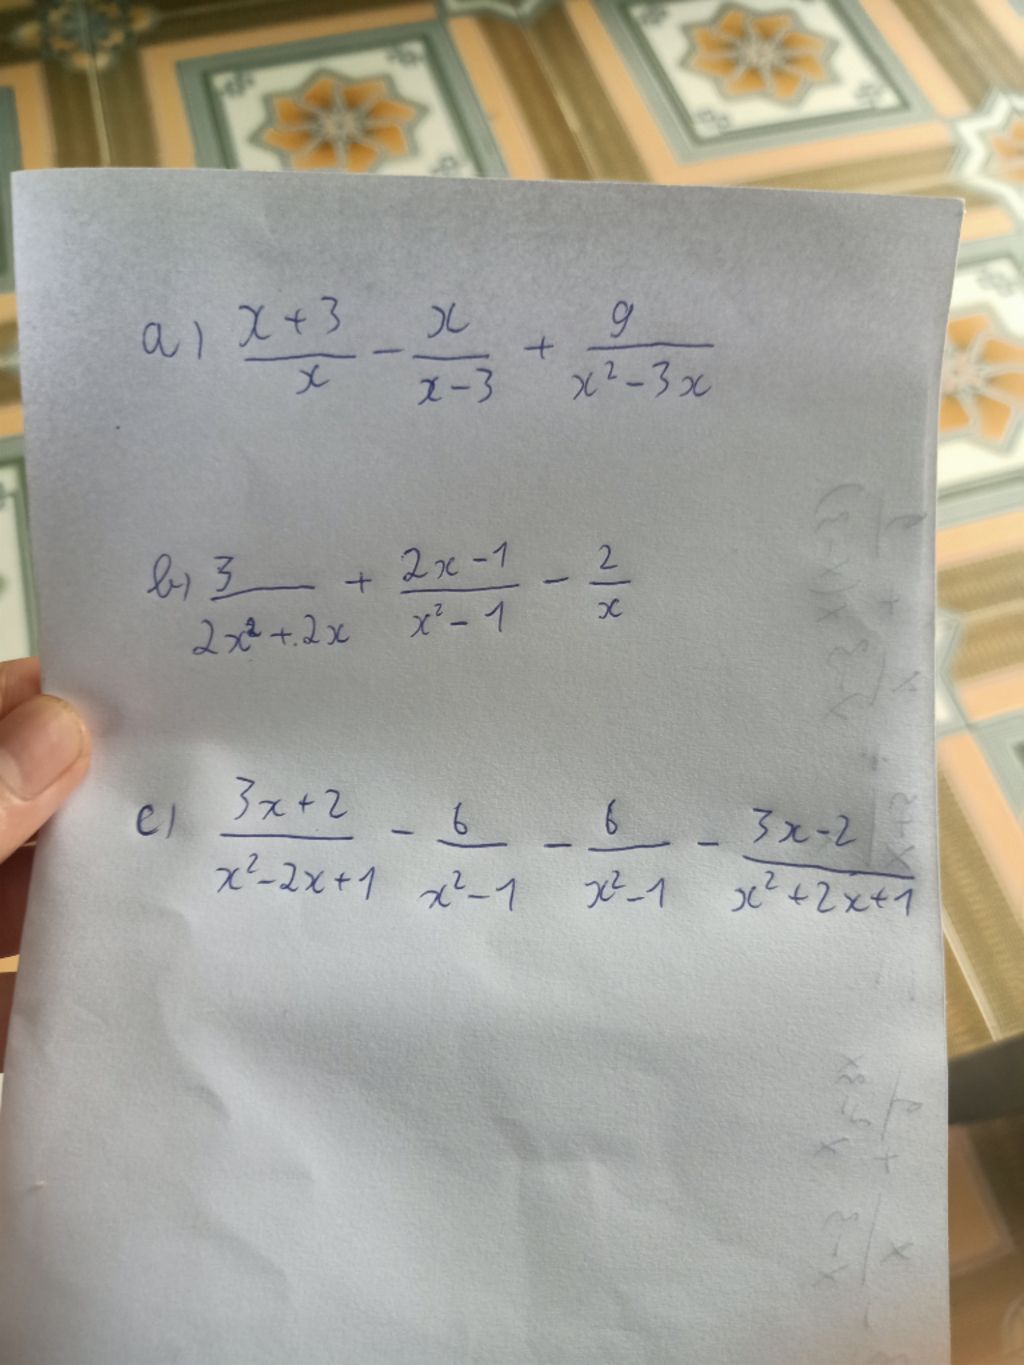 a) \frac{x+3}{x} - \frac{x}{x-3} + \frac{9}{x²-3x}
b) \frac{3}{2x²+2x} + \frac{2x-1}{x²-1} - \frac{2}{x}
c) \frac{3x+2}{x²-2x+1} - \frac{6}{x²-1} - \frac{6}{x²-1} - \frac{3x-2}{x²+2x+1}